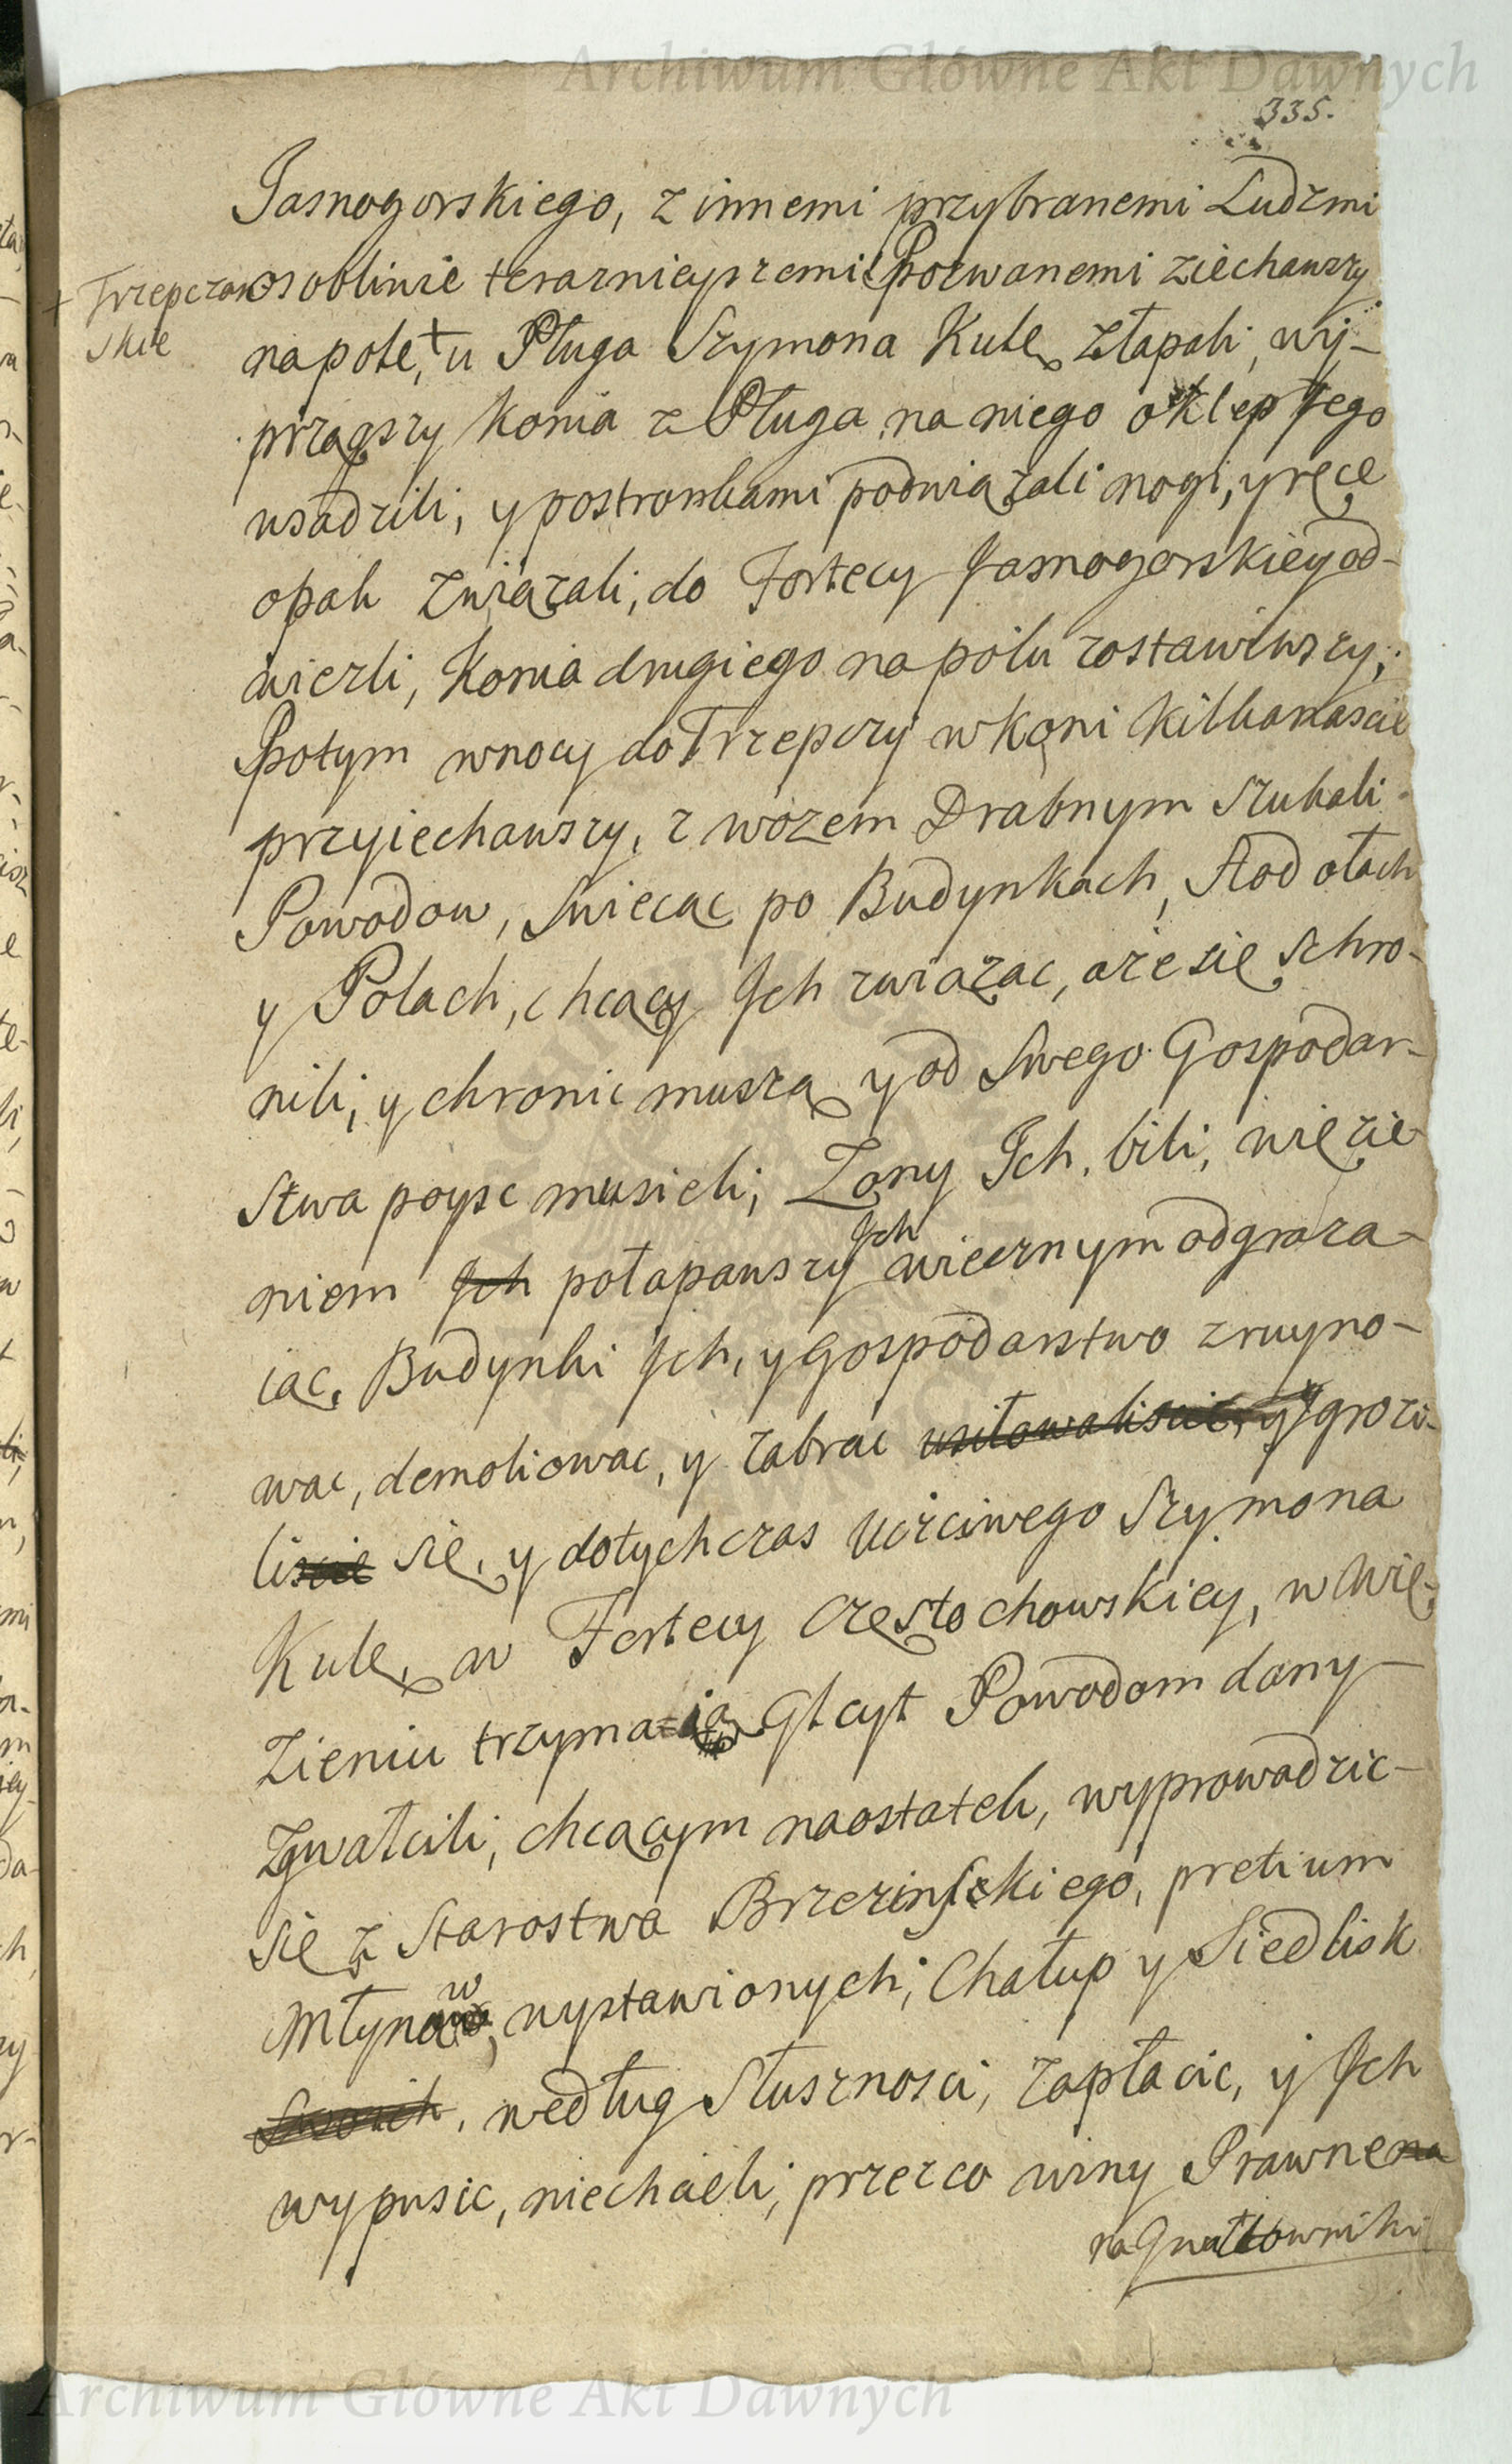 Archiwum Główne Akt Dawnych
335.
Jasnogorskiego, z innemi przybranemi Ludzmi
osobliwie terazniejszemi Pozwanemi ziechawszy
+ Trzepczan
skie
na pole,+ u Pługa Szymona Kule złapali, wy-
przągszy konia z Pługa na niego oklep Jego
wsadzili, y postronkami podwiązali nogi, y ręce
opak związali, do Fortecy Jasnogorskiey od-
wiezli, konia drugiego na polu zostawiwszy;
Potym w nocy do Trzepczy w koni kilkanascie
przyiechawszy, z wozem Drabnym szukali
Powodow, Swiecąc po Budynkach, Stodołach
y Polach, chcący Ich związac, aże się schro-
nili, y chronic muszą y od Swego Gospodar-
stwa poysc musieli; Zony Ich bili, więzie-
niem Ich połapawszy Ich wiecznym odgraza-
iąc, Budynki Ich, y Gospodarstwo zruyno-
wac, demoliowac, y zabrac usiłowaliscie, y grozi-
liscie się, y dotychczas Uczciwego Szymona
Kule, w Fortecy Częstochowskiey, w Wię-
zieniu trzymaią Gleyt Powodom dany
zgwałcili, chcącym naostatek, wyprowadzic
się z Starostwa Brzezinskiego, pretium
Młynow, wystawionych, Chałup y Siedlisk
Swoich, według Słusznosci, zapłacic, y Ich
wypusic, niechcieli, przez co winy Prawne na
na Gwałtowniki
Archiwum Główne Akt Dawnych